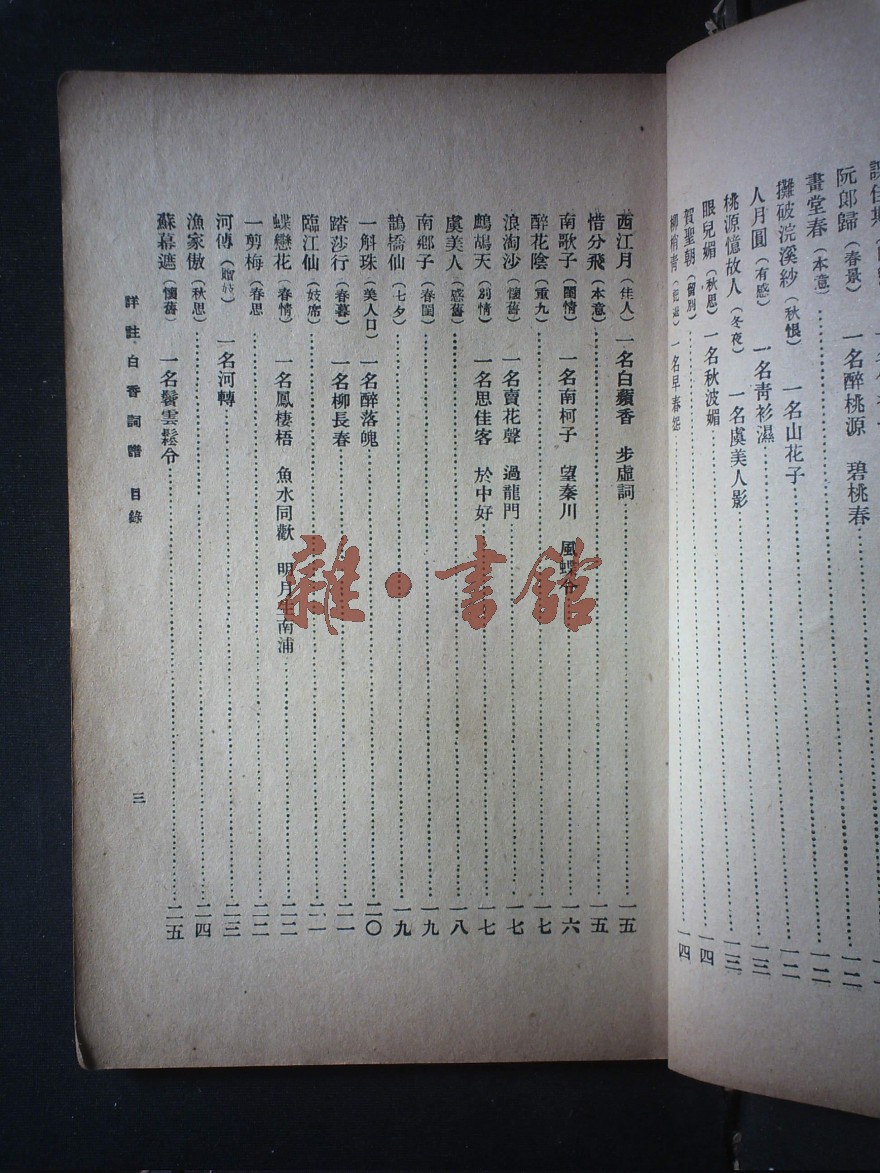 阮郎歸（春景） 一名醉桃源 碧桃春 一二
畫堂春（本意） 一二
攤破浣溪紗（秋恨） 一名山花子 一二
人月圓（有感） 一名靑衫濕 一三
桃源憶故人（冬夜） 一名虞美人影 一三
眼兒媚（秋思） 一名秋波媚 一四
賀聖朝（留別） 一四
西江月（佳人） 一名白蘋香 步虛詞 一五
惜分飛（本意） 一五
南歌子（閨情） 一名南柯子 望秦川 風蝶令 一六
醉花陰（重九） 一七
浪淘沙（懷舊） 一名賣花聲 過龍門 一七
鷓鴣天（別情） 一名思佳客 於中好 一七
虞美人（感舊） 一八
南鄉子（春閨） 一九
鵲橋仙（七夕） 一九
一斛珠（美人口） 一名醉落魄 二〇
踏莎行（春暮） 一名柳長春 二一
臨江仙（妓席） 二一
蝶戀花（春情） 一名鳳棲梧 魚水同歡 明月生南浦 二二
一剪梅（春思） 二二
河傳（贈妓） 一名河轉 二三
漁家傲（秋思） 二四
蘇幕遮（懷舊） 一名鬢雲鬆令 二五
詳註白香詞譜 目錄
三
雜·書館